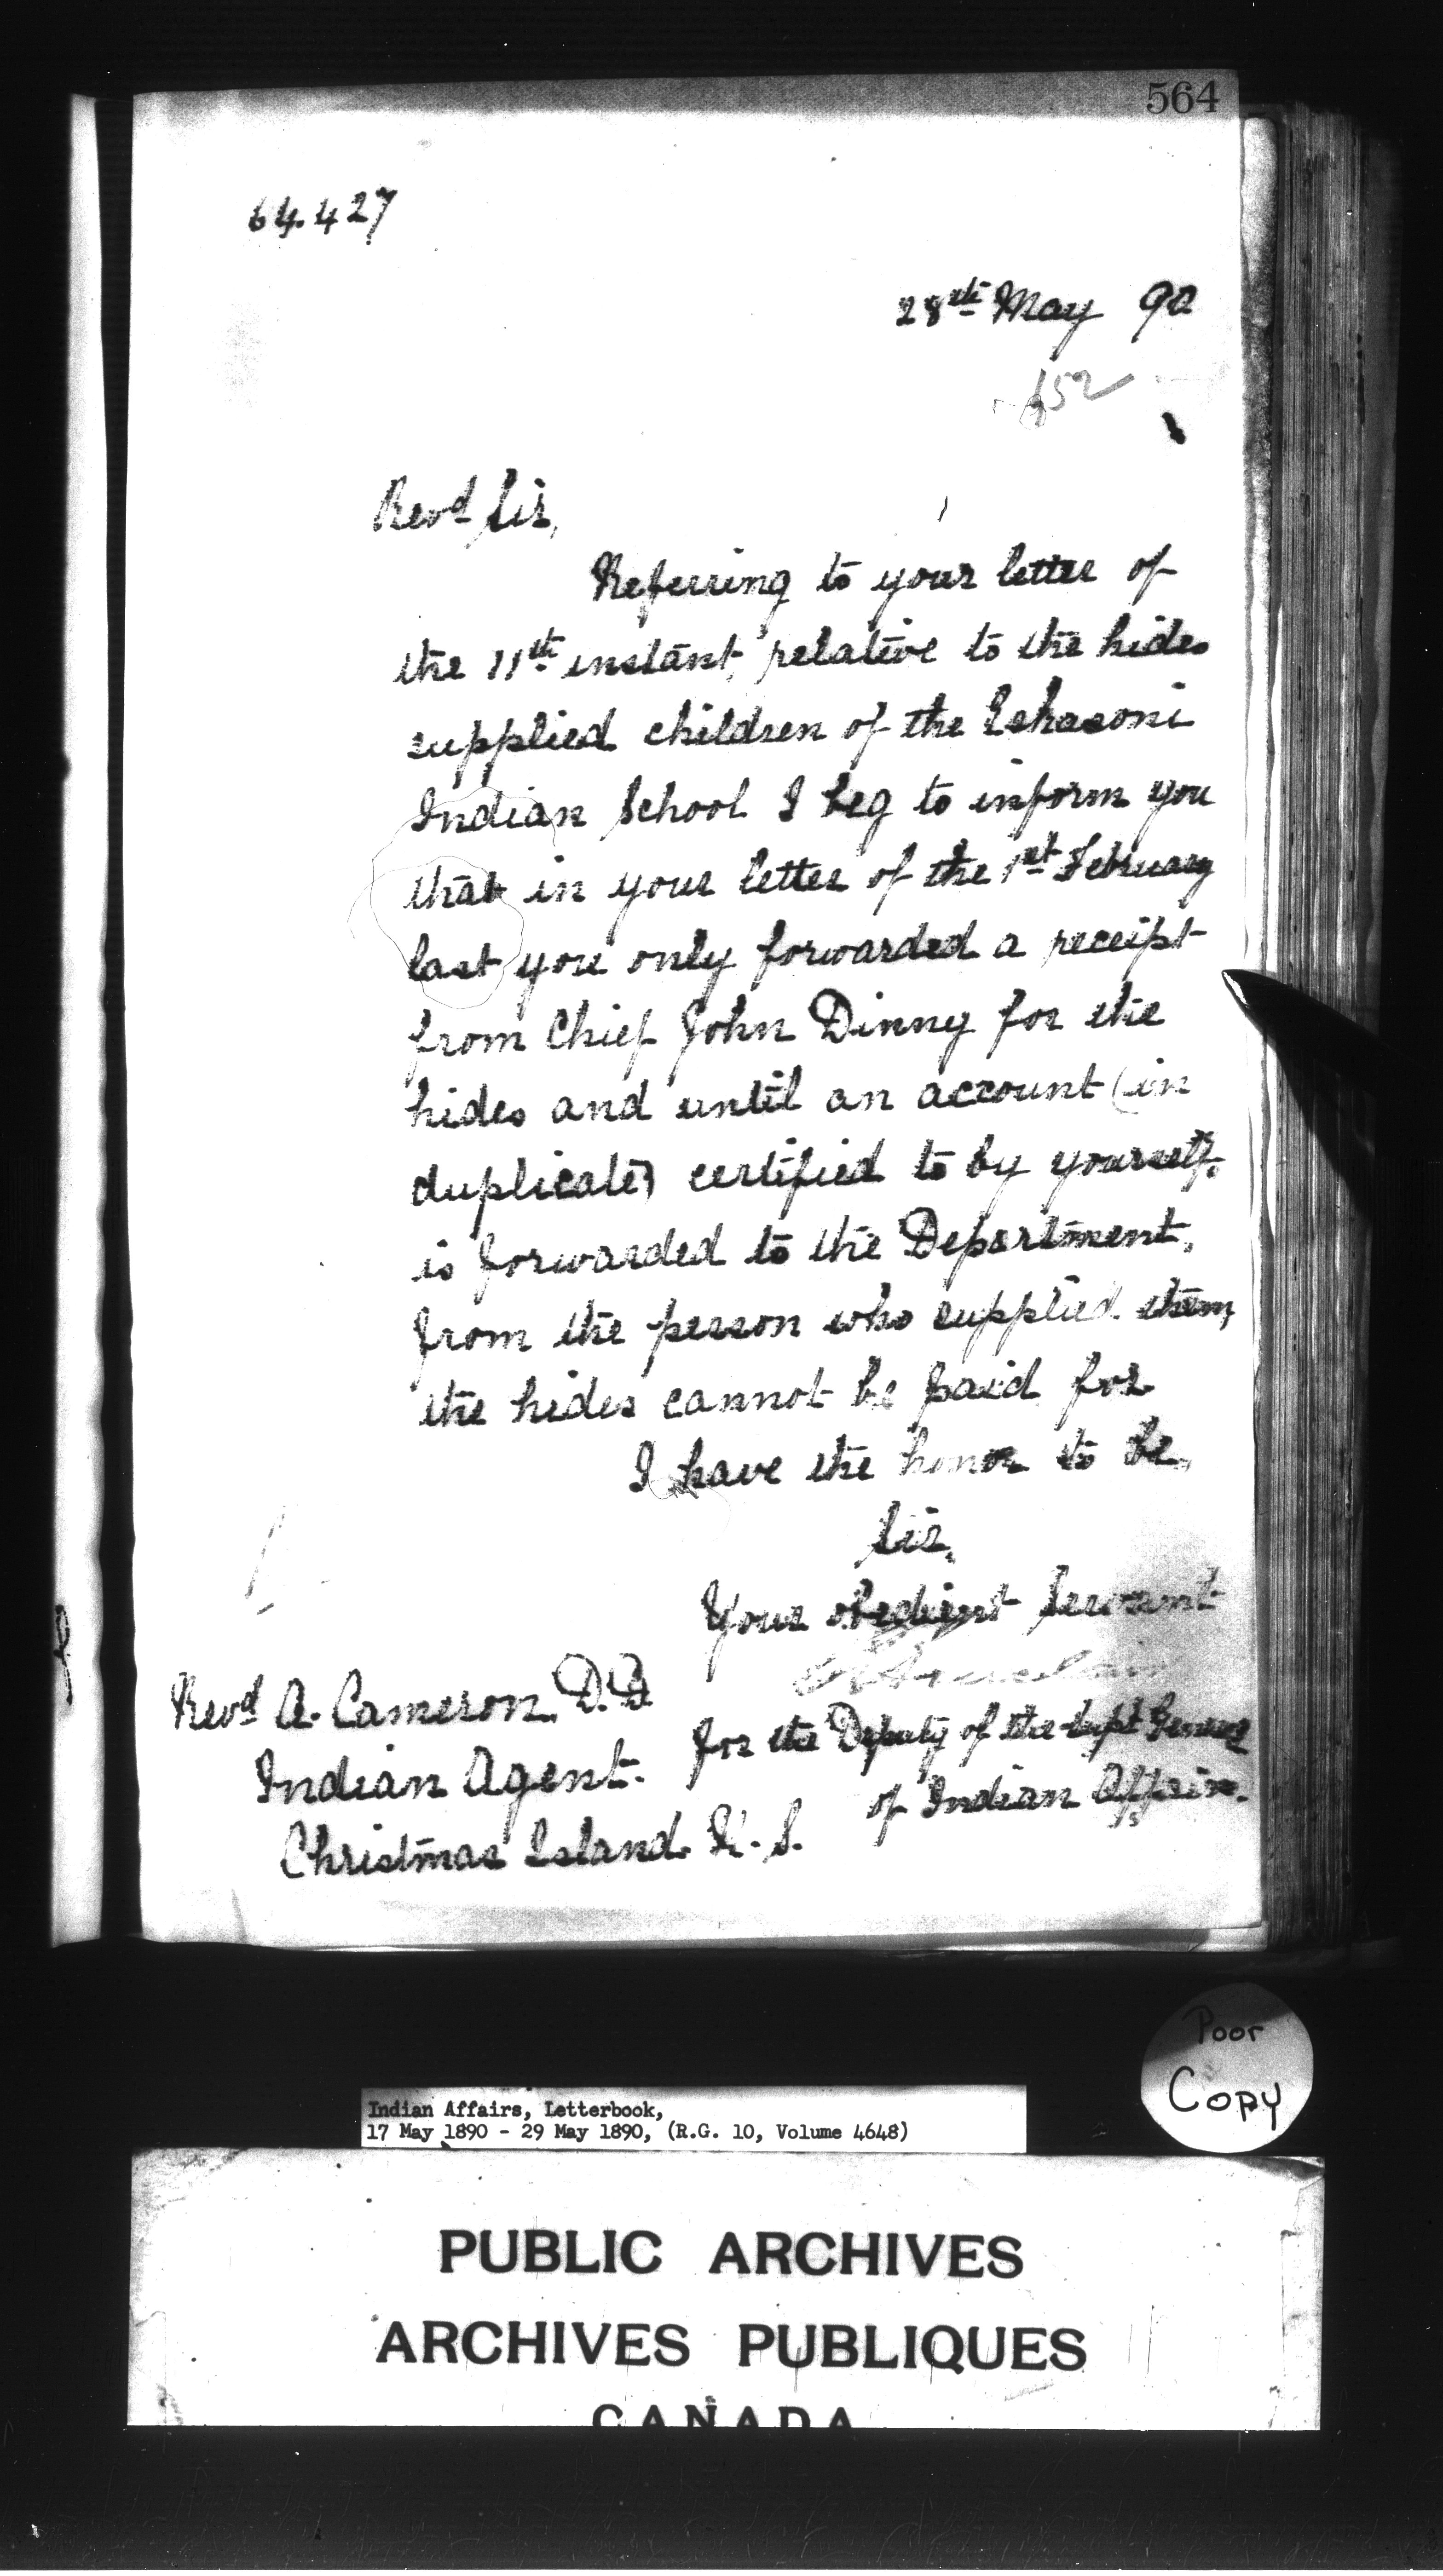 564
64.427
28th May 90
Revd Sir,
Referring to your letter of
the 11th instant, relative to the hides
supplied children of the Eskasoni
Indian School I beg to inform you
that in your letter of the 1st February
last you only forwarded a receipt
from Chief John Dinny for the
hides and until an account (in
duplicate) certified to by yourself,
is forwarded to the Department,
from the person who supplied them,
the hides cannot be paid for
I have the honor to be,
Sir,
Your obedient Servant
for the Deputy of the Supt General
of Indian Affairs.
Revd A. Cameron, D.D
Indian Agent.
Christmas Island. N.S.
Poor
Copy
Indian Affairs, Letterbook,
17 May 1890 - 29 May 1890, (R.G. 10, Volume 4648)
PUBLIC ARCHIVES
ARCHIVES PUBLIQUES
CANADA